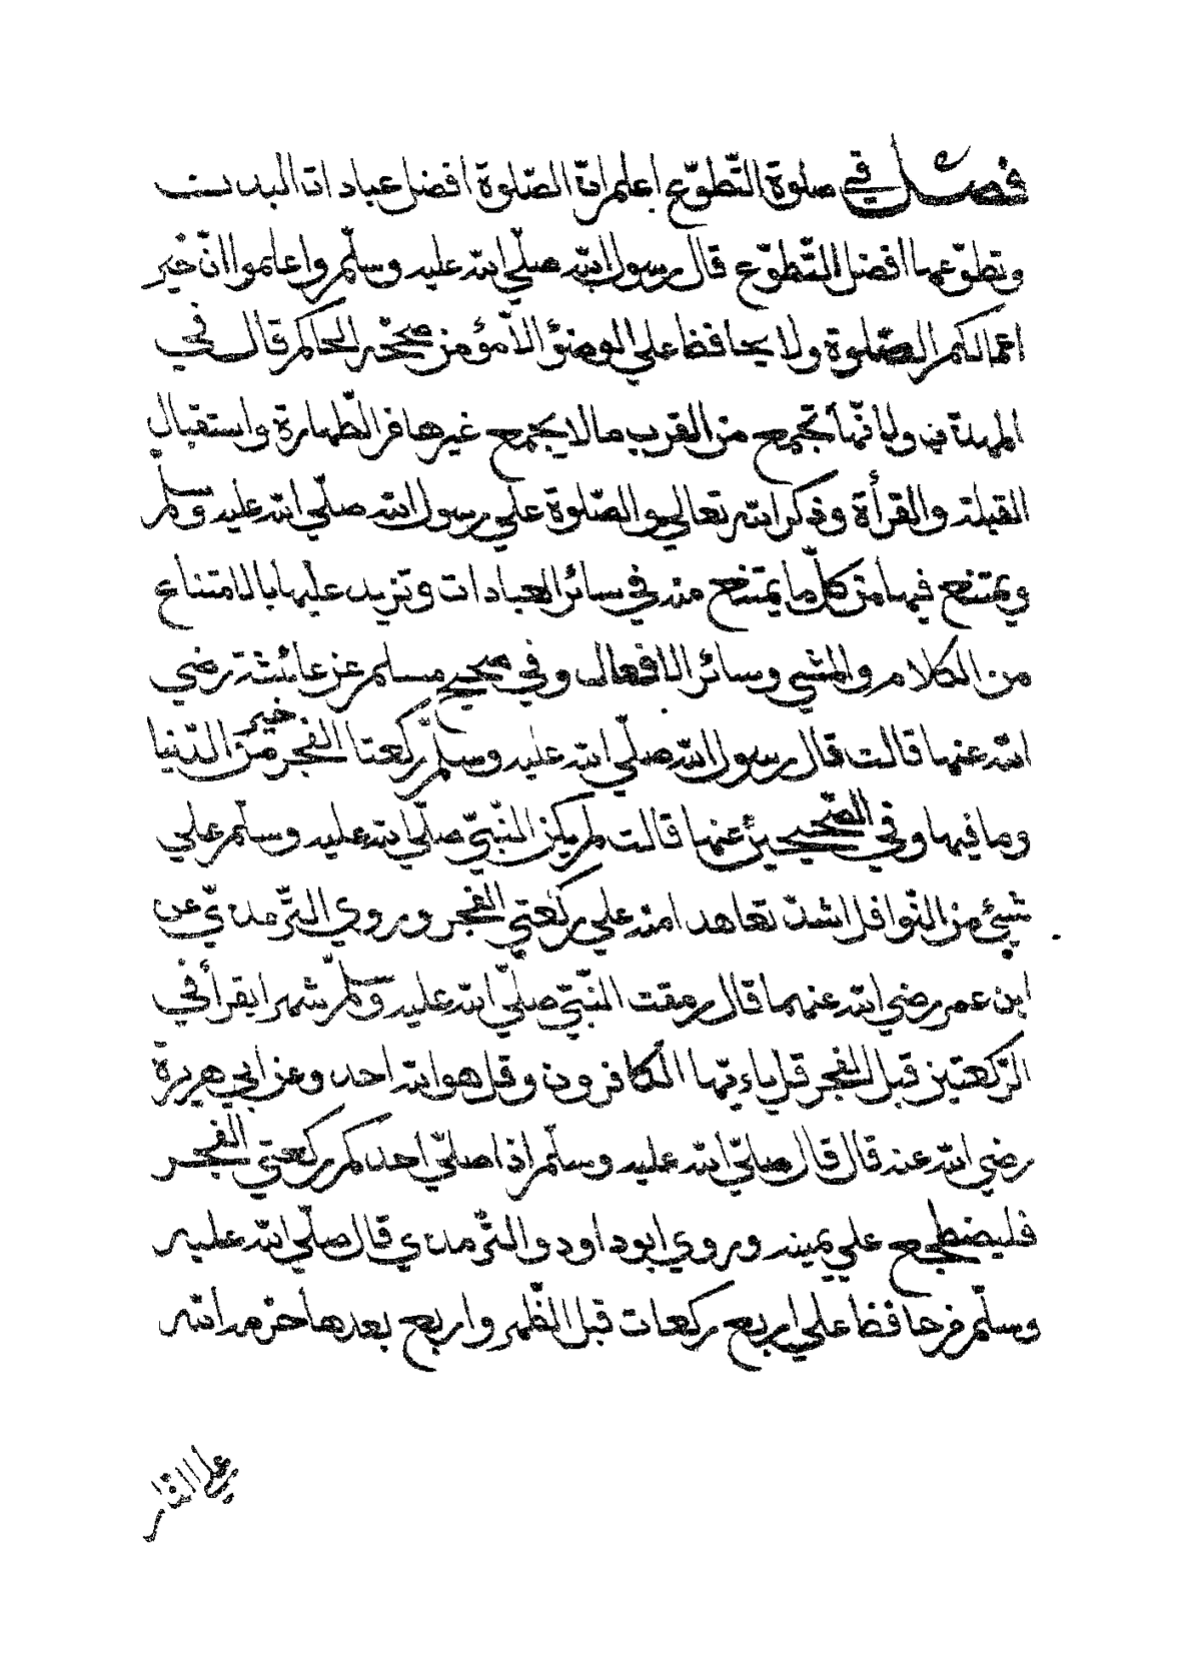 فصل في صلوة التّطوّع اعلم انّ الصّلوة افضل عبادات البدن
وتطوّعها افضل التّطوّع قال رسول الله صلّي الله عليه وسلّم واعلموا انّ خير
اعمالكم الصّلوة ولا يحافظ علي الوضؤ الّا مؤمن صحّحه الحاكم قال في
المهذّب ولانّها تجمع من القرب ما لا يجتمع غيرها من الطّهارة واستقبال
القبلة والقرأة وذكر الله تعالي والصّلوة علي رسول الله صلّي الله عليه وسلّم
ويمتنع فيها من كلّ ما يمتنع منه في سائر العبادات وتزيد عليها بالامتناع
من الكلام والمشي وسائر الافعال وفي صحيح مسلم عن عائشة رضي
الله عنها قالت قال رسول الله صلّي الله عليه وسلّم ركعتا الفجر خير من الدّنيا
وما فيها وفي الصّحيحين عنها قالت لم يكن النّبيّ صلّي الله عليه وسلّم علي
شيئ من النّوافل اشدّ تعاهدا منه علي ركعتي الفجر وروي التّرمذيّ عن
ابن عمر رضي الله عنهما قال رمقت النّبيّ صلّي الله عليه وسلّم شهرا يقرأ في
الرّكعتين قبل الفجر قل ياءيّها الكافرون وقل هو الله احد وعن ابي هريرة
رضي الله عنه قال قال صلّي الله عليه وسلّم اذا صلّي احدكم ركعتي الفجر
فليضطجع علي يمينه وروي ابو داود والتّرمذي قال صلّي الله عليه
وسلّم من حافظ علي اربع ركعات قبل الظّهر واربع بعدها حرّمه الله
علي النّار